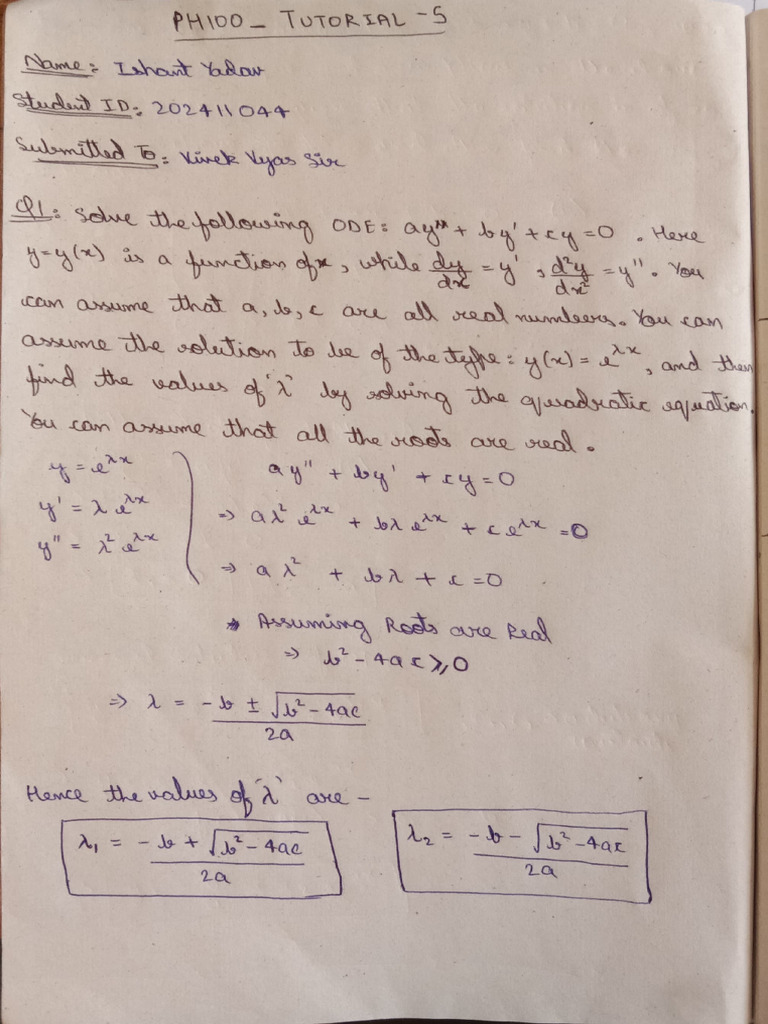 PH100_ TUTORIAL-5
Name: Ishant Yadav
Student ID: 202411044
Submitted To: Vivek Vyas Sir
Q1: Solve the following ODE: ay'' + by' + cy = 0 . Here
y=y(x) is a function of x, while dy/dx = y' , d²y/dx² = y''. You
can assume that a, b, c are all real numbers. You can
assume the solution to be of the type: y(x) = e^λx, and then
find the values of 'λ' by solving the quadratic equation.
You can assume that all the roots are real.
y = e^λx
y' = λ e^λx
y'' = λ² e^λx
ay'' + by' + cy = 0
⇒ aλ² e^λx + bλ e^λx + c e^λx = 0
⇒ aλ² + bλ + c = 0
* Assuming Roots are Real
⇒ b² - 4ac ≥ 0
⇒ λ = -b ± √(b² - 4ac) / 2a
Hence the values of 'λ' are -
λ₁ = -b + √(b² - 4ac) / 2a
λ₂ = -b - √(b² - 4ac) / 2a